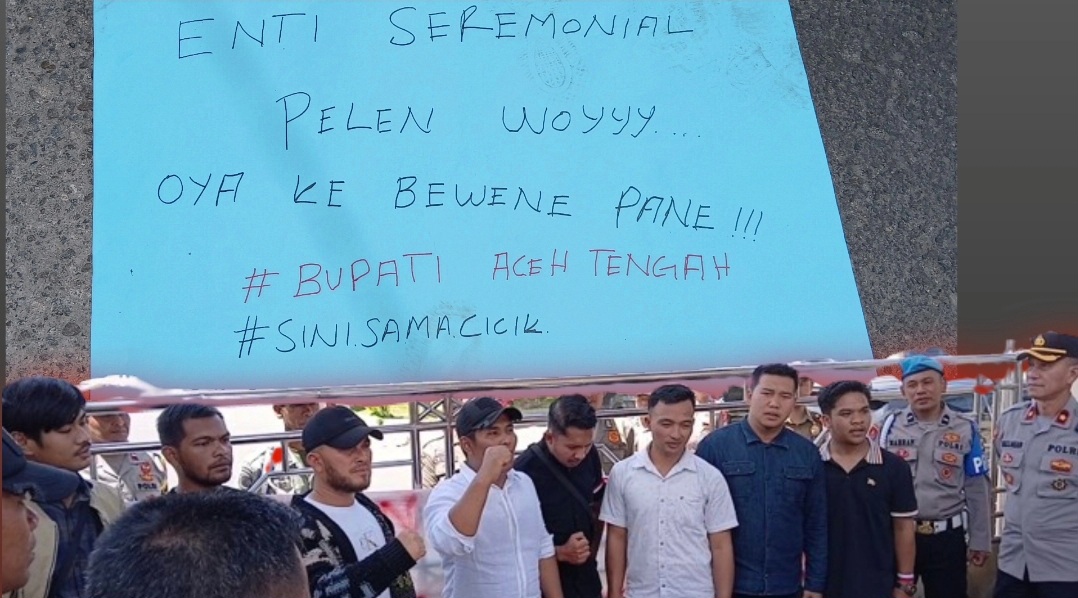 ENTI SEREMONIAL
PELEN WOYYY....
OYA KE BEWENE PANE !!!
# BUPATI ACEH TENGAH
#SINI.SAMA.CICIK.
POLRI
POLRI